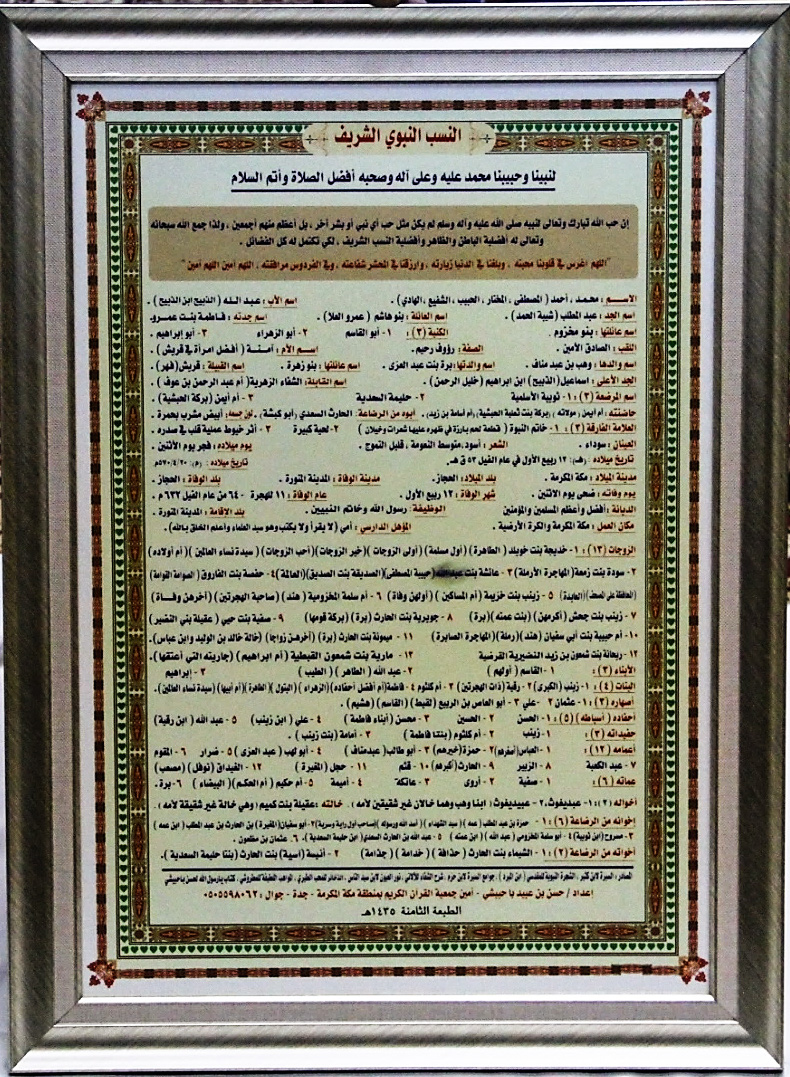 النسب النبوي الشريف
لنبينا وحبيبنا محمد عليه وعلى آله وصحبه أفضل الصلاة وأتم السلام
إن حب الله تبارك وتعالى لنبيه صلى الله عليه وآله وسلم لم يكن مثل حب أي نبي أو بشر آخر ، بل أعظم منهم أجمعين ، ولذا جمع الله سبحانه
وتعالى له أفضلية الباطن والظاهر وأفضلية النسب الشريف ، لكي تكتمل له كل الفضائل .
"اللهم أغرس في قلوبنا محبته ، وبلغنا في الدنيا زيارته ، وارزقنا في المحشر شفاعته ، وفي الفردوس مرافقته ، اللهم آمين اللهم آمين "
الاســـم : محمد ، أحمد ( المصطفى ، المختار ، الحبيب ، الشفيع ، الهادي) . اسم الأب : عبد الله ( الذبيح ابن الذبيح ) .
اسم الجد : عبد المطلب (شيبة الحمد) . اسم العائلة : بنو هاشم ( عمرو العلا) . اسم جدته : فاطمة بنت عمرو .
اسم عائلتها : بنو مخزوم . الكنية (٣) : ١- أبو القاسم ٢- أبو الزهراء ٣- أبو إبراهيم .
اللقب : الصادق الأمين . الصفة : رؤوف رحيم . اســـم الأم : آمنة ( أفضل امرأة في قريش) .
اسم والدها : وهب بن عبد مناف . اسم والدتها : برة بنت عبد العزى . اسم عائلتها : بنو زهرة . اسم القبيلة : قريش (فهر) .
الجد الأعلى : اسماعيل (الذبيح) ابن ابراهيم (خليل الرحمن) . اسم القابلة : الشفاء الزهرية ( أم عبد الرحمن بن عوف ) .
اسم المرضعة (٣) : ١- ثويبة الأسلمية ٢- حليمة السعدية ٣- أم أيمن (بركة الحبشية) .
حاضنته : أم أيمن ، مولاته ( بركة بنت ثعلبة الحبشية) (أم أسامة بن زيد) . أبوه من الرضاعة : الحارث السعدي (أبو كبشة) . لون جسمه : أبيض مشرب بحمرة .
العلامة الفارقة (٣) : ١- خاتم النبوة ( قطعة لحم بارزة في ظهره عليها شعرات وخيلان ) ٢- لحية كبيرة ٣- أثر خيوط عملية قلب في صدره .
العينان : سوداء . الشعر : أسود ، متوسط النعومة ، قليل التموج . يوم ميلاده : فجر يوم الأثنين .
تاريخ ميلاده : (هـ) : ١٢ ربيع الأول في عام الفيل ٥٣ ق.هـ . تاريخ ميلاده : (م) : ٥٧٠/٤/٢٠م
مدينة الميلاد : مكة المكرمة . بلد الميلاد : الحجاز . مدينة الوفاة : المدينة المنورة . بلد الوفاة : الحجاز .
يوم وفاته : ضحى يوم الاثنين . شهر الوفاة : ١٢ ربيع الأول . عام الوفاة : ١١ للهجرة - ٦٤ من عام الفيل ٦٣٢م .
الديانة : أفضل وأعظم المسلمين والمؤمنين الوظيفة : رسول الله وخاتم النبيين . بلد الإقامة : المدينة المنورة .
مكان العمل : مكة المكرمة والكرة الأرضية . المؤهل الدراسي : أمي (لا يقرأ ولا يكتب وهو سيد العلماء وأعلم الخلق بالله) .
الزوجات (١٣) : ١- خديجة بنت خويلد ( الطاهرة) ( أول مسلمة) ( أولى الزوجات) (خير الزوجات) (أحب الزوجات) (سيدة نساء العالمين) ( أم أولاده)
٢- سودة بنت زمعة (المهاجرة الأرملة) ٣- عائشة بنت (حبيبة المصطفى) (الصديقة بنت الصديق) (العالمة) ٤- حفصة بنت الفاروق ( الصوامة القوامة)
(الحافظة على المصحف) (العابدة) ٥- زينب بنت خزيمة ( أم المساكين ) ( أولهن وفاة) ٦- أم سلمة المخزومية ( هند) ( صاحبة الهجرتين ) ( آخرهن وفاة)
٧- زينب بنت جحش ( أكرمهن) ( بنت عمته ) (برة ) ٨- جويرية بنت الحارث (برة ) (بركة قومها ) ٩- صفية بنت حيي ( عقيلة بني النضير)
١٠- أم حبيبة بنت أبي سفيان (هند) (رملة) (المهاجرة الصابرة ) ١١- ميمونة بنت الحارث (برة ) (آخرهن زواجا) (خالة خالد بن الوليد وابن عباس) .
١٢- ريحانة بنت شمعون بن زيد النضيرية القرضية ١٣- مارية بنت شمعون القبطية ( أم ابراهيم ) (جاريته التي أعتقها ) .
الأبناء (٣) : ١- القاسم ( أولهم ) ٢- عبد الله ( الطاهر ) ( الطيب ) ٣- إبراهيم
البنات (٤) : ١- زينب ( الكبرى) ٢- رقية (ذات الهجرتين) ٣- أم كلثوم ٤- فاطمة (أم أفضل أحفاده) (الزهراء ) (البتول ) (الطاهرة ) ( أم أبيها) (سيدة نساء العالمين) .
أصهاره (٣) : ١- عثمان ٢- علي ٣- أبو العاص بن الربيع (لقيط) ( القاسم ) (هشيم) .
أحفاده ( أسباطه ) (٥) : ١- الحسن ٢- الحسين ٣- محسن ( أبناء فاطمة ) ٤- علي ( ابن زينب ) ٥- عبد الله ( ابن رقية)
حفيداته (٣) : ١- زينب ٢- أم كلثوم ( بنتا فاطمة ) ٣- أمامة ( بنت زينب ) .
أعمامه (١٢) : ١- العباس (أصغرهم) ٢- حمزة (خيرهم) ٣- أبو طالب (عبدمناف ) ٤- أبو لهب ( عبد العزى ) ٥- ضرار ٦- المقوم
٧- عبد الكعبة ٨- الزبير ٩- الحارث ( أكبرهم) ١٠- قثم ١١- حجل ( المغيرة ) ١٢- الغيداق (نوفل ) ( مصعب)
عماته (٦) : ١- صفية ٢- أروى ٣- عاتكة ٤- أميمة ٥- أم حكيم ( أم الحكم) ( البيضاء ) ٦- برة .
أخواله (٢) : ١- عبديغوث ، ٢- عبيديغوث ( ابنا وهب وهما خالان غير شقيقين لأمه ) . خالته : عقيلة بنت كميم (وهي خالة غير شقيقة لأمه ) .
إخوانه من الرضاعة (٦) : ١- حمزة بن عبد المطلب ( عمه ) ( سيد الشهداء ) ( أسد الله ورسوله ) (صاحب أول راية وسرية ) ٢- أبو سفيان (المغيرة ) بن الحارث بن عبد المطلب ( ابن عمه )
٣- مسروح ( ابن ثويبة ) ٤- أبو سلمة المخزومي ( عبد الله ) ( ابن عمته ) ٥- عبد الله بن الحارث السعدي (ابن حليمة السعدية ) . ٦- عثمان بن مظعون .
أخواته من الرضاعة (٢) : ١- الشيماء بنت الحارث ( حذافة ) ( خدامة ) ( جدامة ) ٢- أنيسة (آسية) بنت الحارث (بنتا حليمة السعدية) .
المصادر : السيرة لابن كثير ، الشجرة النبوية للمقدسي ( ابن المبرد ) ، جوامع السيرة لابن حزم ، شرح الشفاء للألاني ، نور العيون لابن سيد الناس ، الذخائر للمحب الطبري ، المواهب اللطيفة ، كتاب يارسول الله لحسن باحبيشي
إعداد / حسن بن عبيد باحبيشي - أمين جمعية القرآن الكريم بمنطقة مكة المكرمة - جدة - جوال : ٠٥٠٥٥٩٨٠٦٢
الطبعة الثامنة ١٤٣٥هـ